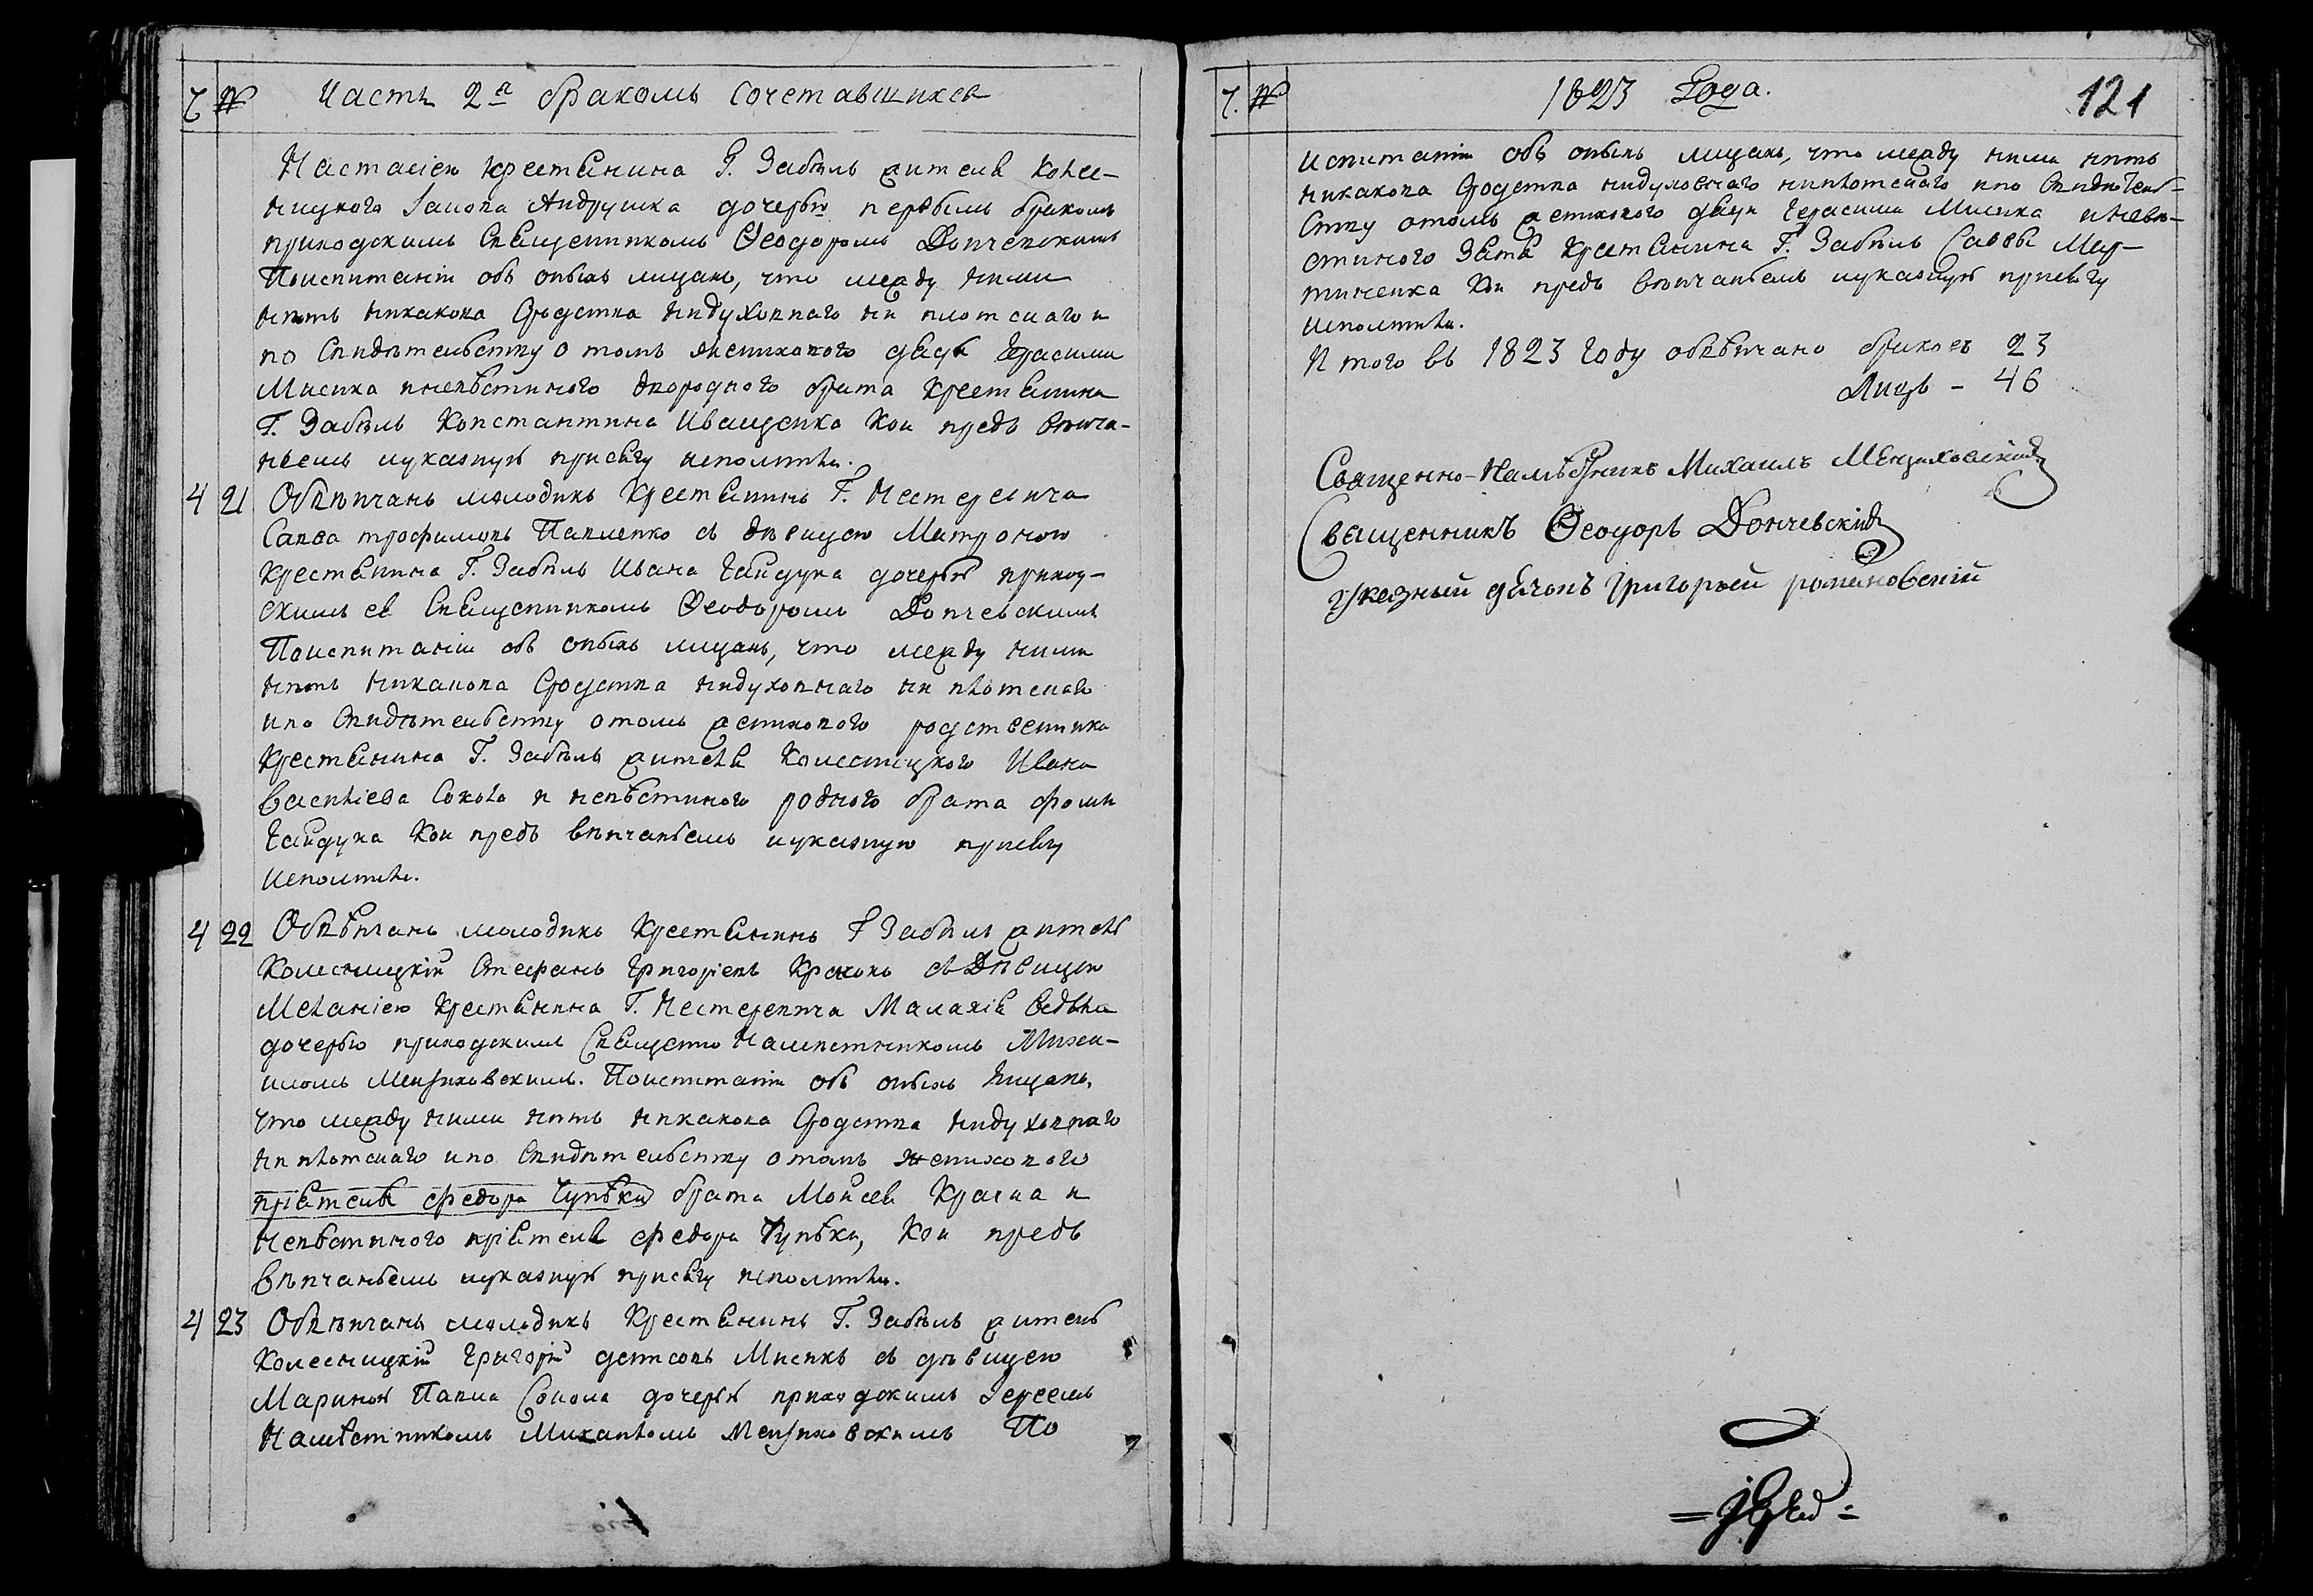 Ч. №
Часть 2я бракомъ сочетавшихся
Настасіею крестянина Г. Забѣлъ жителя Колес-
ницкого Іакова Андрушка дочерью первымъ бракомъ
приходскимъ Священникомъ Ѳеодоромъ Дончевскимъ
Поиспитаніи объ оныхъ лицахъ, что между ними
нѣтъ никакова Сродства нидуховнаго ни плотскаго и
по Свидѣтельству о томъ женихового дяди Герасима
Мисика иневѣстиного двородного брата Крестянина
Г. Забѣлъ Константина Иващенка Кои предъ вѣнча-
ніемъ иуказную присягу исполнили.
4 21 Обвѣнчанъ молодикъ Крестянинъ Г. Нестеревича
Савва трофимовъ Павленко съ дѣвицею Матроною
крестянина Г. Забѣлъ Ивана Гайдука дочерью приход-
скимъ ея Священникомъ Ѳеодоромъ Дончевскимъ
Поиспитаніи объ оныхъ лицахъ, что между ними
нѣтъ никакова Сродства нидуховнаго ни плотскаго
ипо Свидѣтельству отомъ женихового родственника
Крестянина Г. Забѣлъ жителя Колесницкого Ивана
Василіева Сокола и невѣстиного родного брата фоми
Гайдука Кои предъ вѣнчаніемъ иуказную присягу
исполнили.
4 22 Обвѣнчанъ молодикъ Крестянинъ Г Забѣлъ житель
Колесницкій Стефанъ Григоріевъ Краснъ съ Дѣвицею
Меланіею Крестянина Г. Нестеревича Малахія Ведѣл
дочерью приходскимъ Священно Намѣстникомъ Миха-
иломъ Мензиховскимъ. Поиспитаніи объ оныхъ лицахъ,
что между ними нѣтъ никакова Сродства нидуховнаго
ни плотскаго ипо Свидѣтельству отомъ женихового
пріятеля федора Чупѣки брата Мойсея Красна и
Невѣстиного пріятеля федора Чупѣки, Кои предъ
вѣнчаніемъ иуказную присягу исполнили.
4 23 Обвѣнчанъ молодикъ Крестянинъ Г. Забѣлъ житель
Колесницкій Григорій Мисикъ съ дѣвицею
Мариною Павла Сокола дочерью приходскимъ Іереемъ
Намѣстникомъ Михаиломъ Мензиховскимъ По
Ч. №
1823 Года.
121
испитаніи объ оныхъ лицахъ, что между ними нѣтъ
никакова Сродства нидуховнаго ниплотскаго ипо Свидѣтель-
ству отомъ женихового дяди Герасима Мисика иневѣ-
стиного Зятя Крестянина Г. Забѣлъ Саввы Мар-
тиненка Кои предъ вѣнчаніемъ иуказную присягу
исполнили.
Итого въ 1823 году обвѣнчано браковъ 23
Лицъ - 46
Священно-Намѣстникъ Михаилъ Мензиховскій
Священникъ Ѳеодоръ Дончевскій
указный дячокъ Григорій романовскій